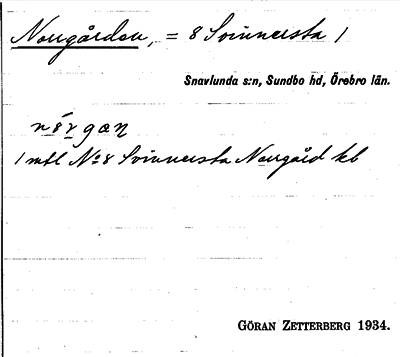 Norrgården, = 8 Svinnersta 1
Snavlunda s:n, Sundbo hd, Örebro län.
1 mtl No 8 Svinnersta Norrgård kb
GÖRAN ZETTERBERG 1934.